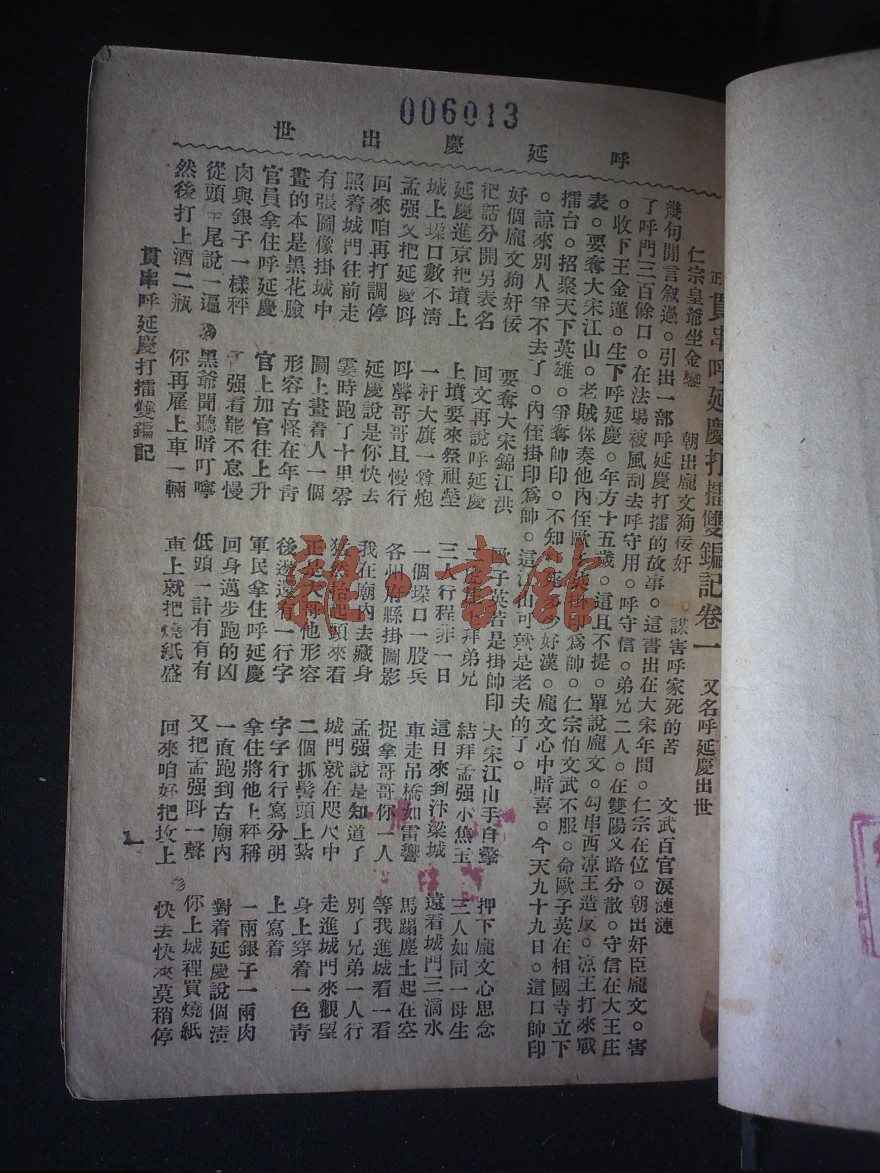 006013
呼延慶出世
正貫串呼延慶打擂雙鞭記卷一 又名呼延慶出世
仁宗皇爺坐金鑾 朝出龐文狗佞奸 謀害呼家死的苦 文武百官淚漣漣
幾句閒言叙過。引出一部呼延慶打擂的故事。這書出在大宋年間。仁宗在位。朝出奸臣龐文。害
了呼門三百餘口。在法場被風刮去呼守用。呼守信。弟兄二人。在雙陽叉路分散。守信在大王庄
。收下王金蓮。生下呼延慶。年方十五歲。這且不提。單說龐文。勾串西凉王造反。凉王打來戰
表。要奪大宋江山。老賊保奏他內侄歐子英掛印爲帥。仁宗怕文武不服。命歐子英在相國寺立下
擂台。招聚天下英雄。爭奪帥印。不知死多少好漢。龐文心中暗喜。今天九十九日。這口帥印
。諒來別人爭不去了。內侄掛印爲帥。這江山可就是老夫的了。
好個龐文狗奸佞 要奪大宋錦江洪 歐子英若是掛帥印 大宋江山手自擎 押下龐文心思念
把話分開另表名 回文再說呼延慶 弟兄 結拜孟强小焦玉 三人如同一母生
延慶進京把墳上 上墳要來祭祖塋 三人行程非一日 這日來到汴梁城 遠看城門三滴水
城上垜口數不淸 一杆大旗一聲炮 一個垜口一股兵 車走吊橋如雷響 馬蹋塵土起在空
孟强又把延慶呌 呌聲哥哥且慢行 各州府縣掛圖影 捉拿哥哥你一人 等我進城看一看
回來咱再打調停 延慶說是你快去 我在廟內去藏身 孟强說是知道了 別了兄弟一人行
照着城門往前走 霎時跑了十里零 猛然抬起頭來看 城門就在咫尺中 走進城門來觀望
有張圖像掛城中 圖上畫着人一個 正是大哥他形容 二個抓髻頭上紮 身上穿着一色靑
畫的本是黑花臉 形容古怪在年靑 後邊還有一行字 字字行行寫分明 上寫着
官員拿住呼延慶 官上加官往上升 軍民拿住呼延慶 拿住將他上秤稱 一兩銀子一兩肉
肉與銀子一樣秤 强看罷不怠慢 回身邁步跑的凶 一直跑到古廟內 對着延慶說個淸
從頭至尾說一遍 黑爺聞聽暗叮嚀 低頭一計有有有 又把孟强呌一聲 你上城裡買燒紙
然後打上酒二瓶 你再雇上車一輛 車上就把燒紙盛 回來咱好把坟上 快去快來莫稍停
貫串呼延慶打擂雙鞭記
一
雜·書館